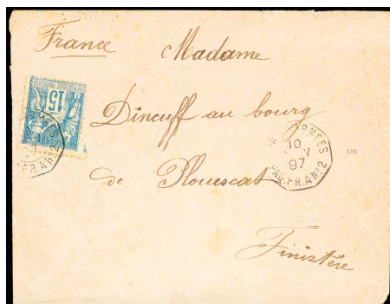 France
Madame
Dincuff au bourg
de Plouescat
Finistère
15
10
97
PAQ.FR.A Nº2